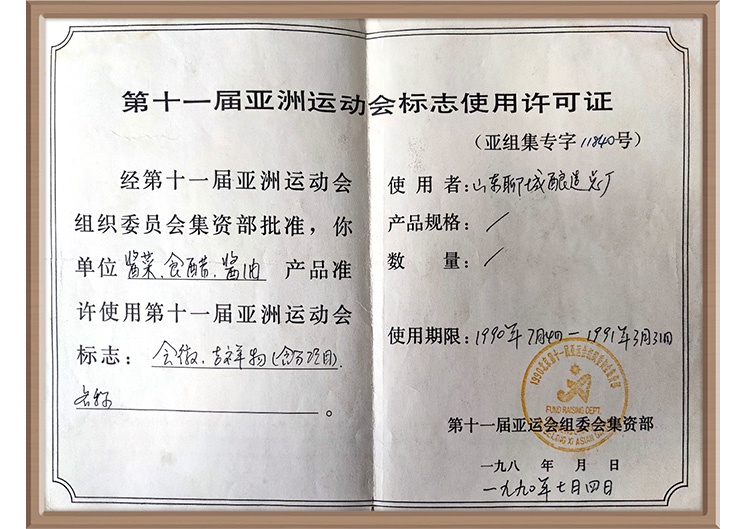 第十一届亚洲运动会标志使用许可证
(亚组集专字11840号)
经第十一届亚洲运动会
组织委员会集资部批准，你
单位酱菜、食醋、酱油 产品准
许使用第十一届亚洲运动会
标志：会徽、吉祥物(含分项目)、
名称。
使用者：山东聊城酿造总厂
产品规格：/
数量：/
使用期限：1990年7月4日—1991年3月31日
FUND RAISING DEPT.
第十一届亚运会组委会集资部
一九八 年 月 日
一九九〇年七月四日